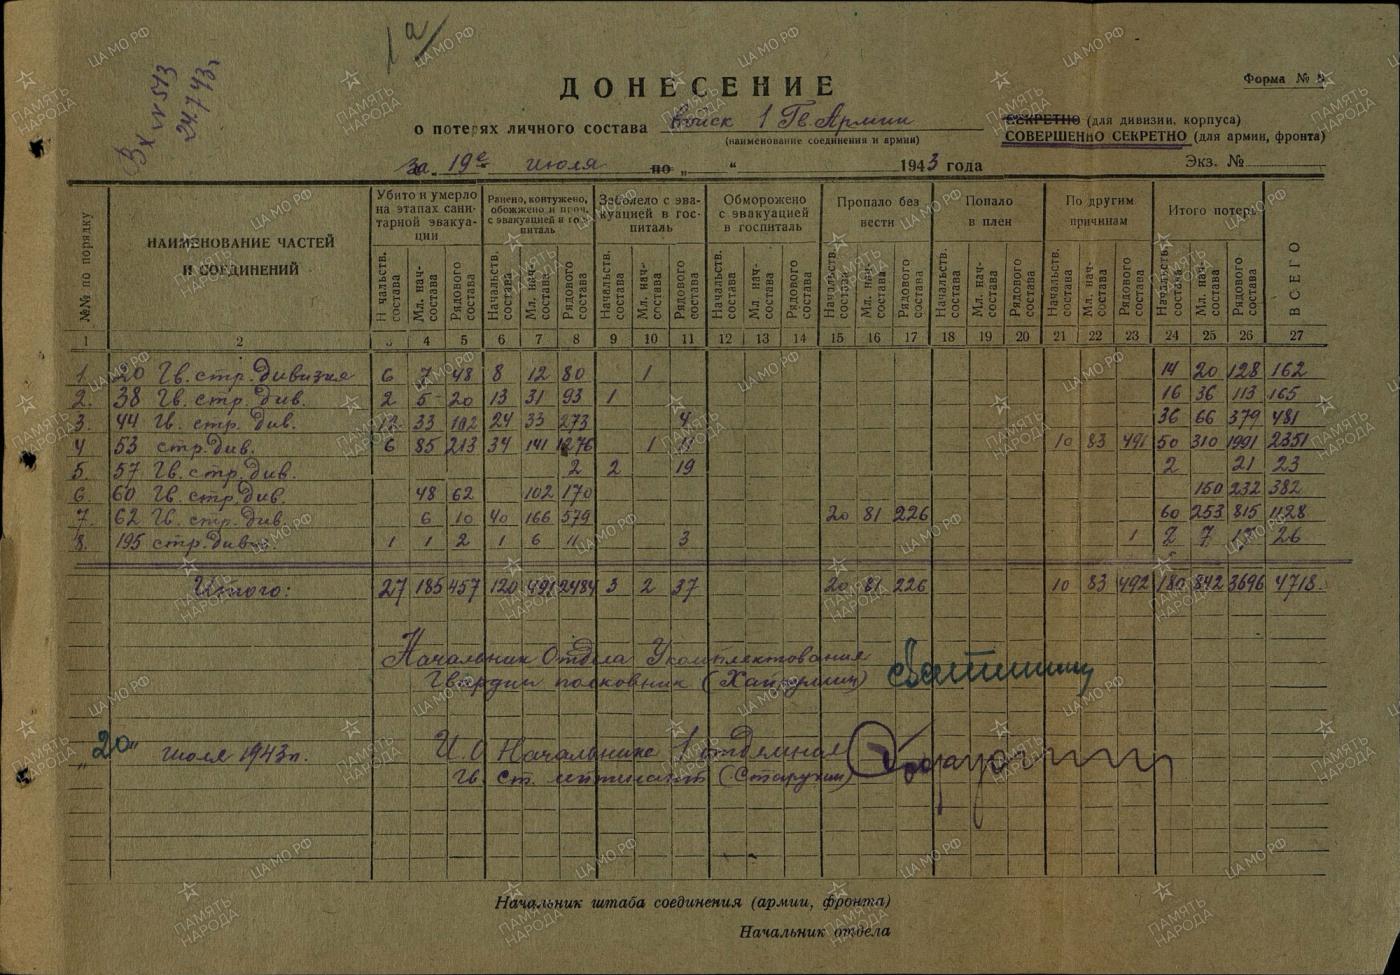 1а
Вх №513
24.7.43г.
Форма № 8
ДОНЕСЕНИЕ
о потерях личного состава Войск 1 Гв. Армии
(наименование соединения и армии)
СЕКРЕТНО (для дивизии, корпуса)
СОВЕРШЕННО СЕКРЕТНО (для армии, фронта)
за 19е июля по „ “ 1943 года
Экз. №
№№ по порядку | НАИМЕНОВАНИЕ ЧАСТЕЙ И СОЕДИНЕНИЙ | Убито и умерло на этапах санитарной эвакуации | Ранено, контужено, обожжено и проч. с эвакуацией в госпиталь | Заболело с эвакуацией в госпиталь | Обморожено с эвакуацией в госпиталь | Пропало без вести | Попало в плен | По другим причинам | Итого потерь | ВСЕГО
Начальств. состава | Мл. нач-состава | Рядового состава | Начальств. состава | Мл. нач-состава | Рядового состава | Начальств. состава | Мл. нач-состава | Рядового состава | Начальств. состава | Мл. нач-состава | Рядового состава | Начальств. состава | Мл. нач-состава | Рядового состава | Начальств. состава | Мл. нач-состава | Рядового состава | Начальств. состава | Мл. нач-состава | Рядового состава | Начальств. состава | Мл. нач-состава | Рядового состава
1 2 3 4 5 6 7 8 9 10 11 12 13 14 15 16 17 18 19 20 21 22 23 24 25 26 27
1. 20 Гв. стр. дивизия 6 7 48 8 12 80 1 14 20 128 162
2. 38 Гв. стр. див. 2 5 20 13 31 93 1 16 36 113 165
3. 44 Гв. стр. див. 12 33 102 24 33 273 4 36 66 379 481
4 53 стр. див. 6 85 213 34 141 1276 1 11 10 83 491 50 310 1991 2351
5. 57 Гв. стр. див. 2 2 19 2 21 23
6. 60 Гв. стр. див. 48 62 102 170 150 232 382
7. 62 Гв. стр. див. 6 10 40 166 579 20 81 226 60 253 815 1128
8. 195 стр. див. 1 1 2 1 6 11 3 1 2 7 17 26
Итого: 27 185 457 120 491 2484 3 2 37 20 81 226 10 83 492 180 842 3696 4718.
Начальник Отдела Укомплектования
Гвардии полковник
„20“ июля 1943г.
И.О. Начальника 1 отделния
Гв. ст. лейтенант (Старухин)
Начальник штаба соединения (армии, фронта)
Начальник отдела
ЦА МО РФ
ПАМЯТЬ НАРОДА